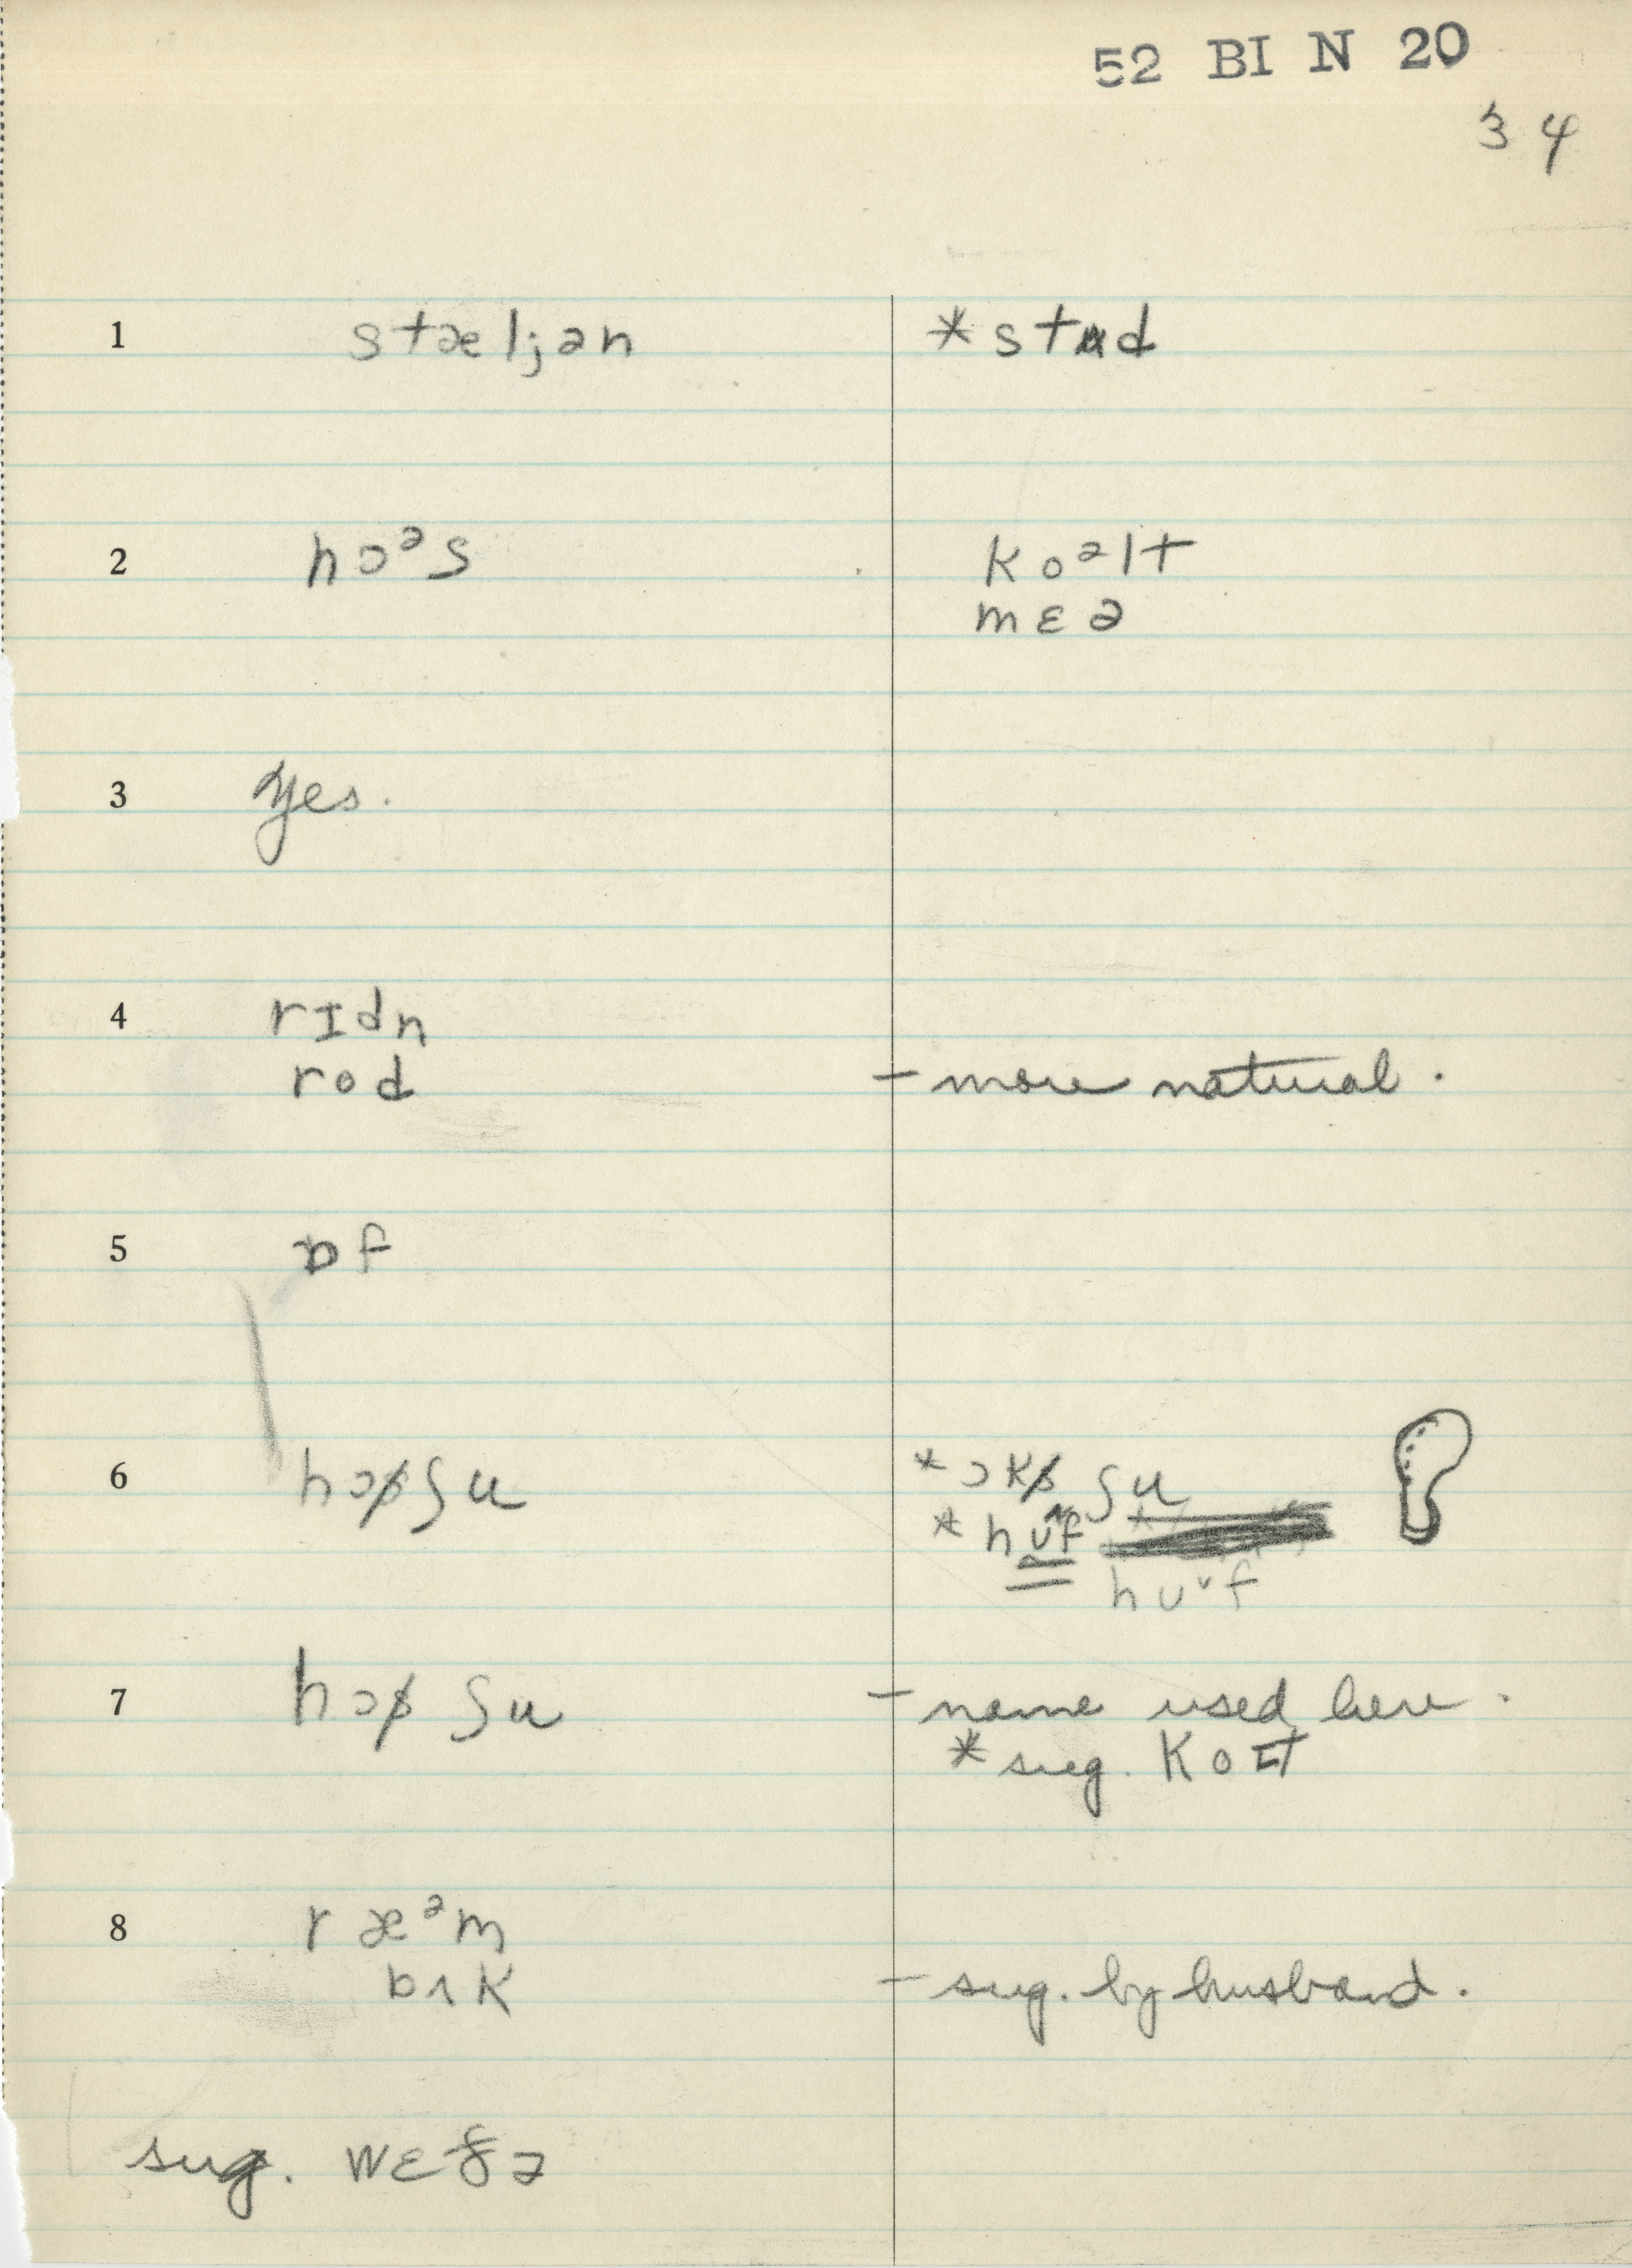 52 BI N 20
3 4
1 stæljən *stʌd
2 hɔᵊs koᵊlt
mɛə
3 Yes.
4 rɪdn
rod – more natural.
5 ɒf
6 hɔʃu
*ɔkʃu
*hʊf
hʊ˅f
7 hɔʃu – name used here.
*sug. kolt
8 ræᵊm
bʌk – sug. by husband.
sug. wɛðə